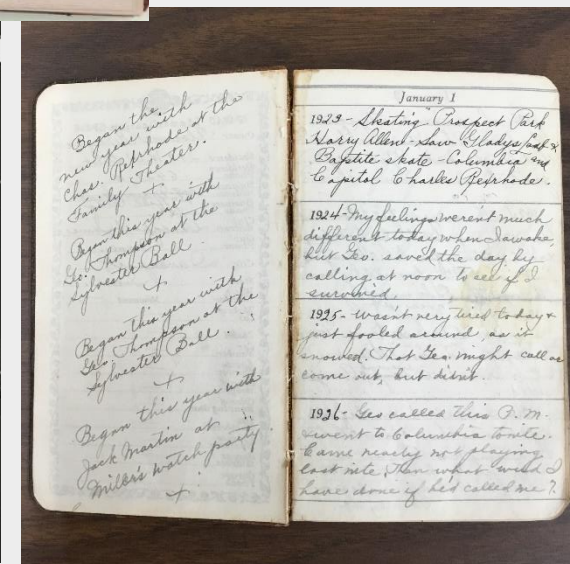 Began the
new year with
Chas. Refshode at the
Family Theater.
+
Began this year with
Geo. Thompson at the
Sylvester Ball.
+
Began this year with
Geo. Thompson at the
Sylvester Ball.
+
Began this year with
Jack Martin at
Miller's watch party.
+
January 1
1923- Skating Prospect Park
Harry Allen- Saw Gladys &
Baptite skate- Columbia and
Capitol Charles
1924- My feelings werent much
different today when I awoke,
but Geo. saved the day by
calling at noon to see if I
survived.
1925- Wasn't very tired today &
just fooled around, as it
snowed. That Geo. might call or
come out, but didn't.
1926- Geo called this P.M.
& went to Columbia tonite.
Came nearly not playing
last nite, then what would I
have done if he'd called me?